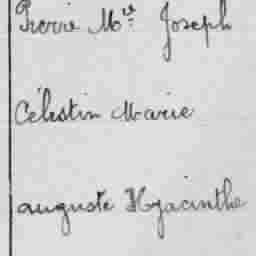 Pierre Mie Joseph
Célestin Marie
auguste Hyacinthe